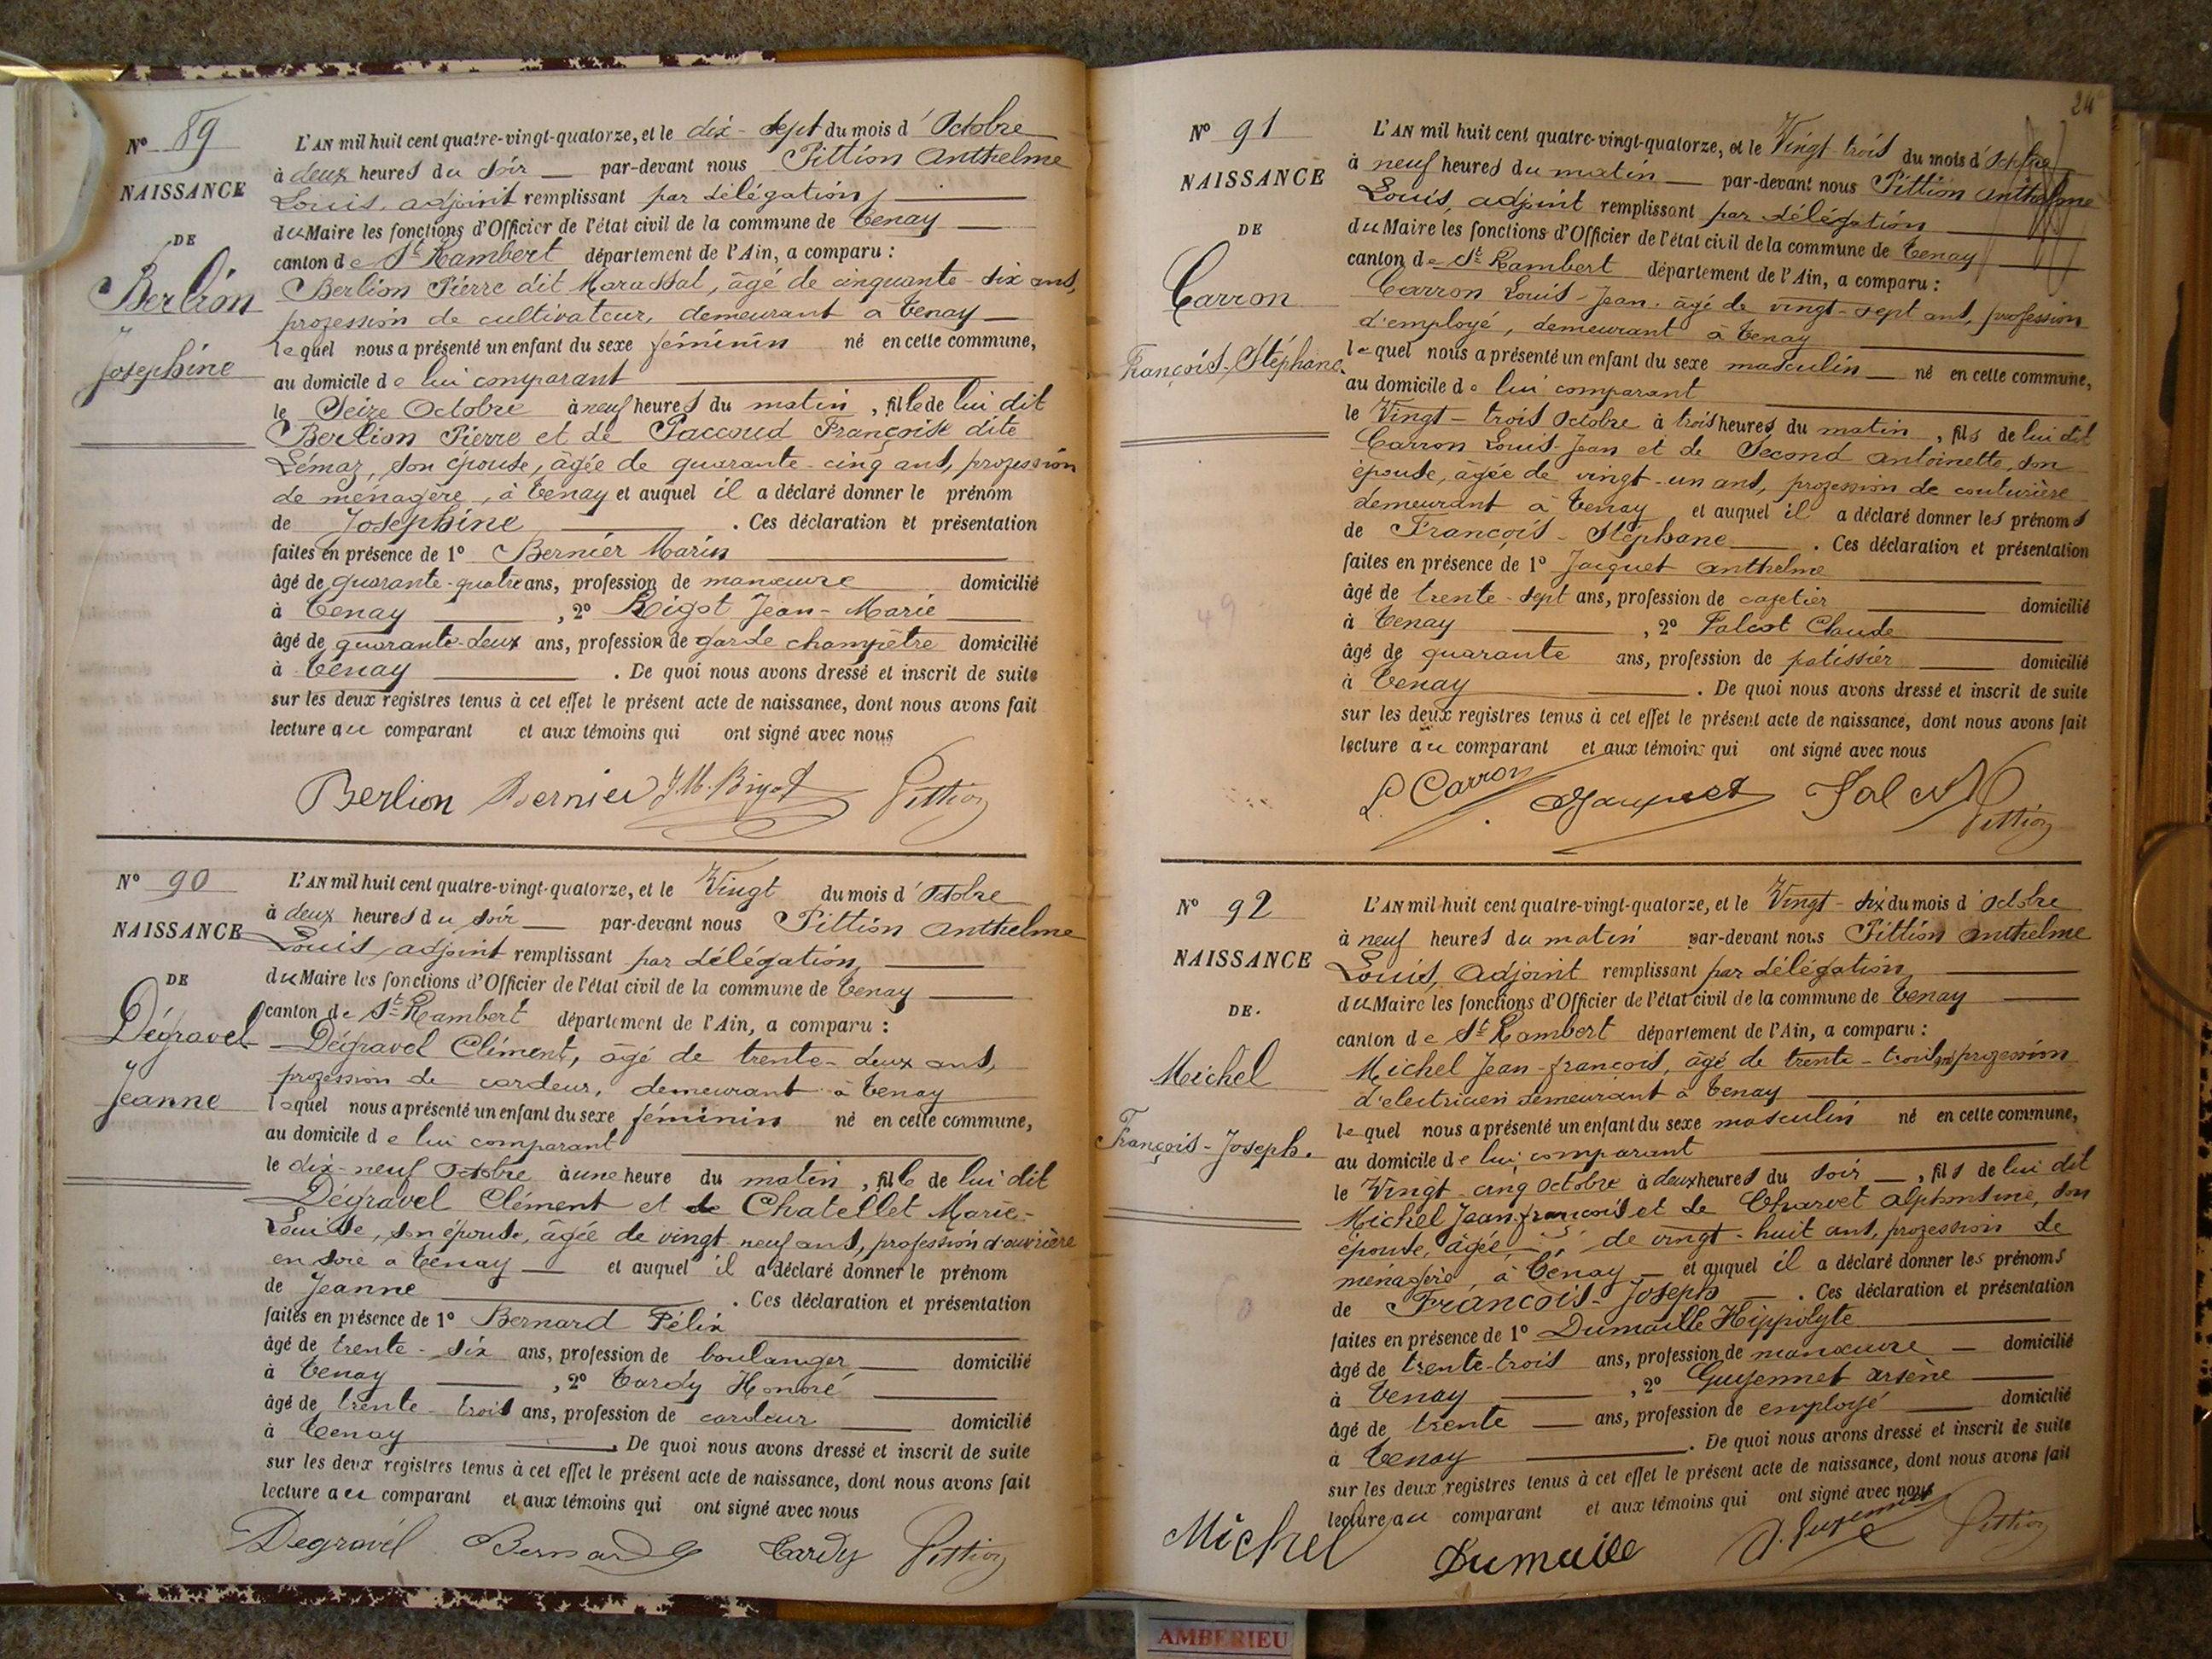 Nº 89
NAISSANCE
DE
Berlion
Josephine
L'AN mil huit cent quatre-vingt-quatorze, et le dix-sept du mois d'Octobre
à deux heures du soir par-devant nous Pittion Anthelme
Louis, adjoint remplissant par délégation,
du Maire les fonctions d'Officier de l'état civil de la commune de Tenay
canton de St Rambert département de l'Ain, a comparu :
Berlion Pierre dit , âgé de cinquante-six ans,
profession de cultivateur, demeurant à Tenay
lequel nous a présenté un enfant du sexe féminin né en cette commune,
au domicile de lui comparant
le Seize Octobre à neuf heures du matin, fille de lui dit
Berlion Pierre et de Paccoud Françoise dite
Lémaz, son épouse, âgée de quarante-cinq ans, profession
de ménagère, à Tenay et auquel il a déclaré donner le prénom
de Josephine . Ces déclaration et présentation
faites en présence de 1º Bernier Marin
âgé de quarante-quatre ans, profession de manœuvre domicilié
à Tenay , 2º Bigot Jean-Marie
âgé de quarante-deux ans, profession de garde champêtre domicilié
à Tenay . De quoi nous avons dressé et inscrit de suite
sur les deux registres tenus à cet effet le présent acte de naissance, dont nous avons fait
lecture au comparant et aux témoins qui ont signé avec nous
Berlion Bernier J.M. Bigot Pittion
Nº 90
NAISSANCE
DE
Dégravel
Jeanne
L'AN mil huit cent quatre-vingt-quatorze, et le Vingt du mois d'Octobre
à deux heures du soir par-devant nous Pittion Anthelme
Louis, adjoint remplissant par délégation,
du Maire les fonctions d'Officier de l'état civil de la commune de Tenay
canton de St Rambert département de l'Ain, a comparu :
Dégravel Clément, âgé de trente-deux ans,
profession de cardeur, demeurant à Tenay
lequel nous a présenté un enfant du sexe féminin né en cette commune,
au domicile de lui comparant
le dix-neuf Octobre à une heure du matin, fille de lui dit
Dégravel Clément et de Chatellet Marie-
Louise, son épouse, âgée de vingt-neuf ans, profession d'ouvrière
en soie à Tenay et auquel il a déclaré donner le prénom
de Jeanne . Ces déclaration et présentation
faites en présence de 1º Bernard Félix
âgé de trente-six ans, profession de boulanger domicilié
à Tenay , 2º Tardy Honoré
âgé de trente-trois ans, profession de cardeur domicilié
à Tenay . De quoi nous avons dressé et inscrit de suite
sur les deux registres tenus à cet effet le présent acte de naissance, dont nous avons fait
lecture au comparant et aux témoins qui ont signé avec nous
Degravel Bernard Tardy Pittion
24
Nº 91
NAISSANCE
DE
Carron
François-Stéphane.
L'AN mil huit cent quatre-vingt-quatorze, et le Vingt-trois du mois d'Octobre
à neuf heures du matin par-devant nous Pittion Anthelme
Louis, adjoint remplissant par délégation
du Maire les fonctions d'Officier de l'état civil de la commune de Tenay
canton de St Rambert département de l'Ain, a comparu :
Carron Louis-Jean. âgé de vingt-sept ans, profession
d'employé, demeurant à Tenay
lequel nous a présenté un enfant du sexe masculin né en cette commune,
au domicile de lui comparant
le Vingt-trois Octobre à trois heures du matin, fils de lui dit
Carron Louis-Jean et de Second Antoinette, son
épouse, âgée de vingt-un ans, profession de couturière
demeurant à Tenay et auquel il a déclaré donner les prénoms
de François-Stéphane . Ces déclaration et présentation
faites en présence de 1º Jacquet Anthelme
âgé de trente-sept ans, profession de cafetier domicilié
à Tenay , 2º Falcot Claude
âgé de quarante ans, profession de patissier domicilié
à Tenay . De quoi nous avons dressé et inscrit de suite
sur les deux registres tenus à cet effet le présent acte de naissance, dont nous avons fait
lecture au comparant et aux témoins qui ont signé avec nous
49
L Carron Jacquet Pittion
Nº 92
NAISSANCE
DE.
Michel
François-Joseph.
L'AN mil huit cent quatre-vingt-quatorze, et le Vingt-six du mois d'Octobre
à neuf heures du matin par-devant nous Pittion Anthelme
Louis, Adjoint remplissant par délégation,
du Maire les fonctions d'Officier de l'état civil de la commune de Tenay
canton de St Rambert département de l'Ain, a comparu :
Michel Jean-françois, âgé de trente-trois ans, profession
d'electricien demeurant à Tenay
lequel nous a présenté un enfant du sexe masculin né en cette commune,
au domicile de lui comparant
le Vingt-cinq Octobre à deux heures du soir, fils de lui dit
Michel Jean-françois et de Charvet Alphonsine, son
épouse, âgée de vingt-huit ans, profession de
ménagère, à Tenay et auquel il a déclaré donner les prénoms
de François-Joseph . Ces déclaration et présentation
faites en présence de 1º Dumaille Hippolyte
âgé de trente-trois ans, profession de manœuvre domicilié
à Tenay , 2º Guyennet Arsène
âgé de trente ans, profession de employé domicilié
à Tenay . De quoi nous avons dressé et inscrit de suite
sur les deux registres tenus à cet effet le présent acte de naissance, dont nous avons fait
lecture au comparant et aux témoins qui ont signé avec nous
Michel Dumaille A. Guyennet Pittion
AMBERIEU